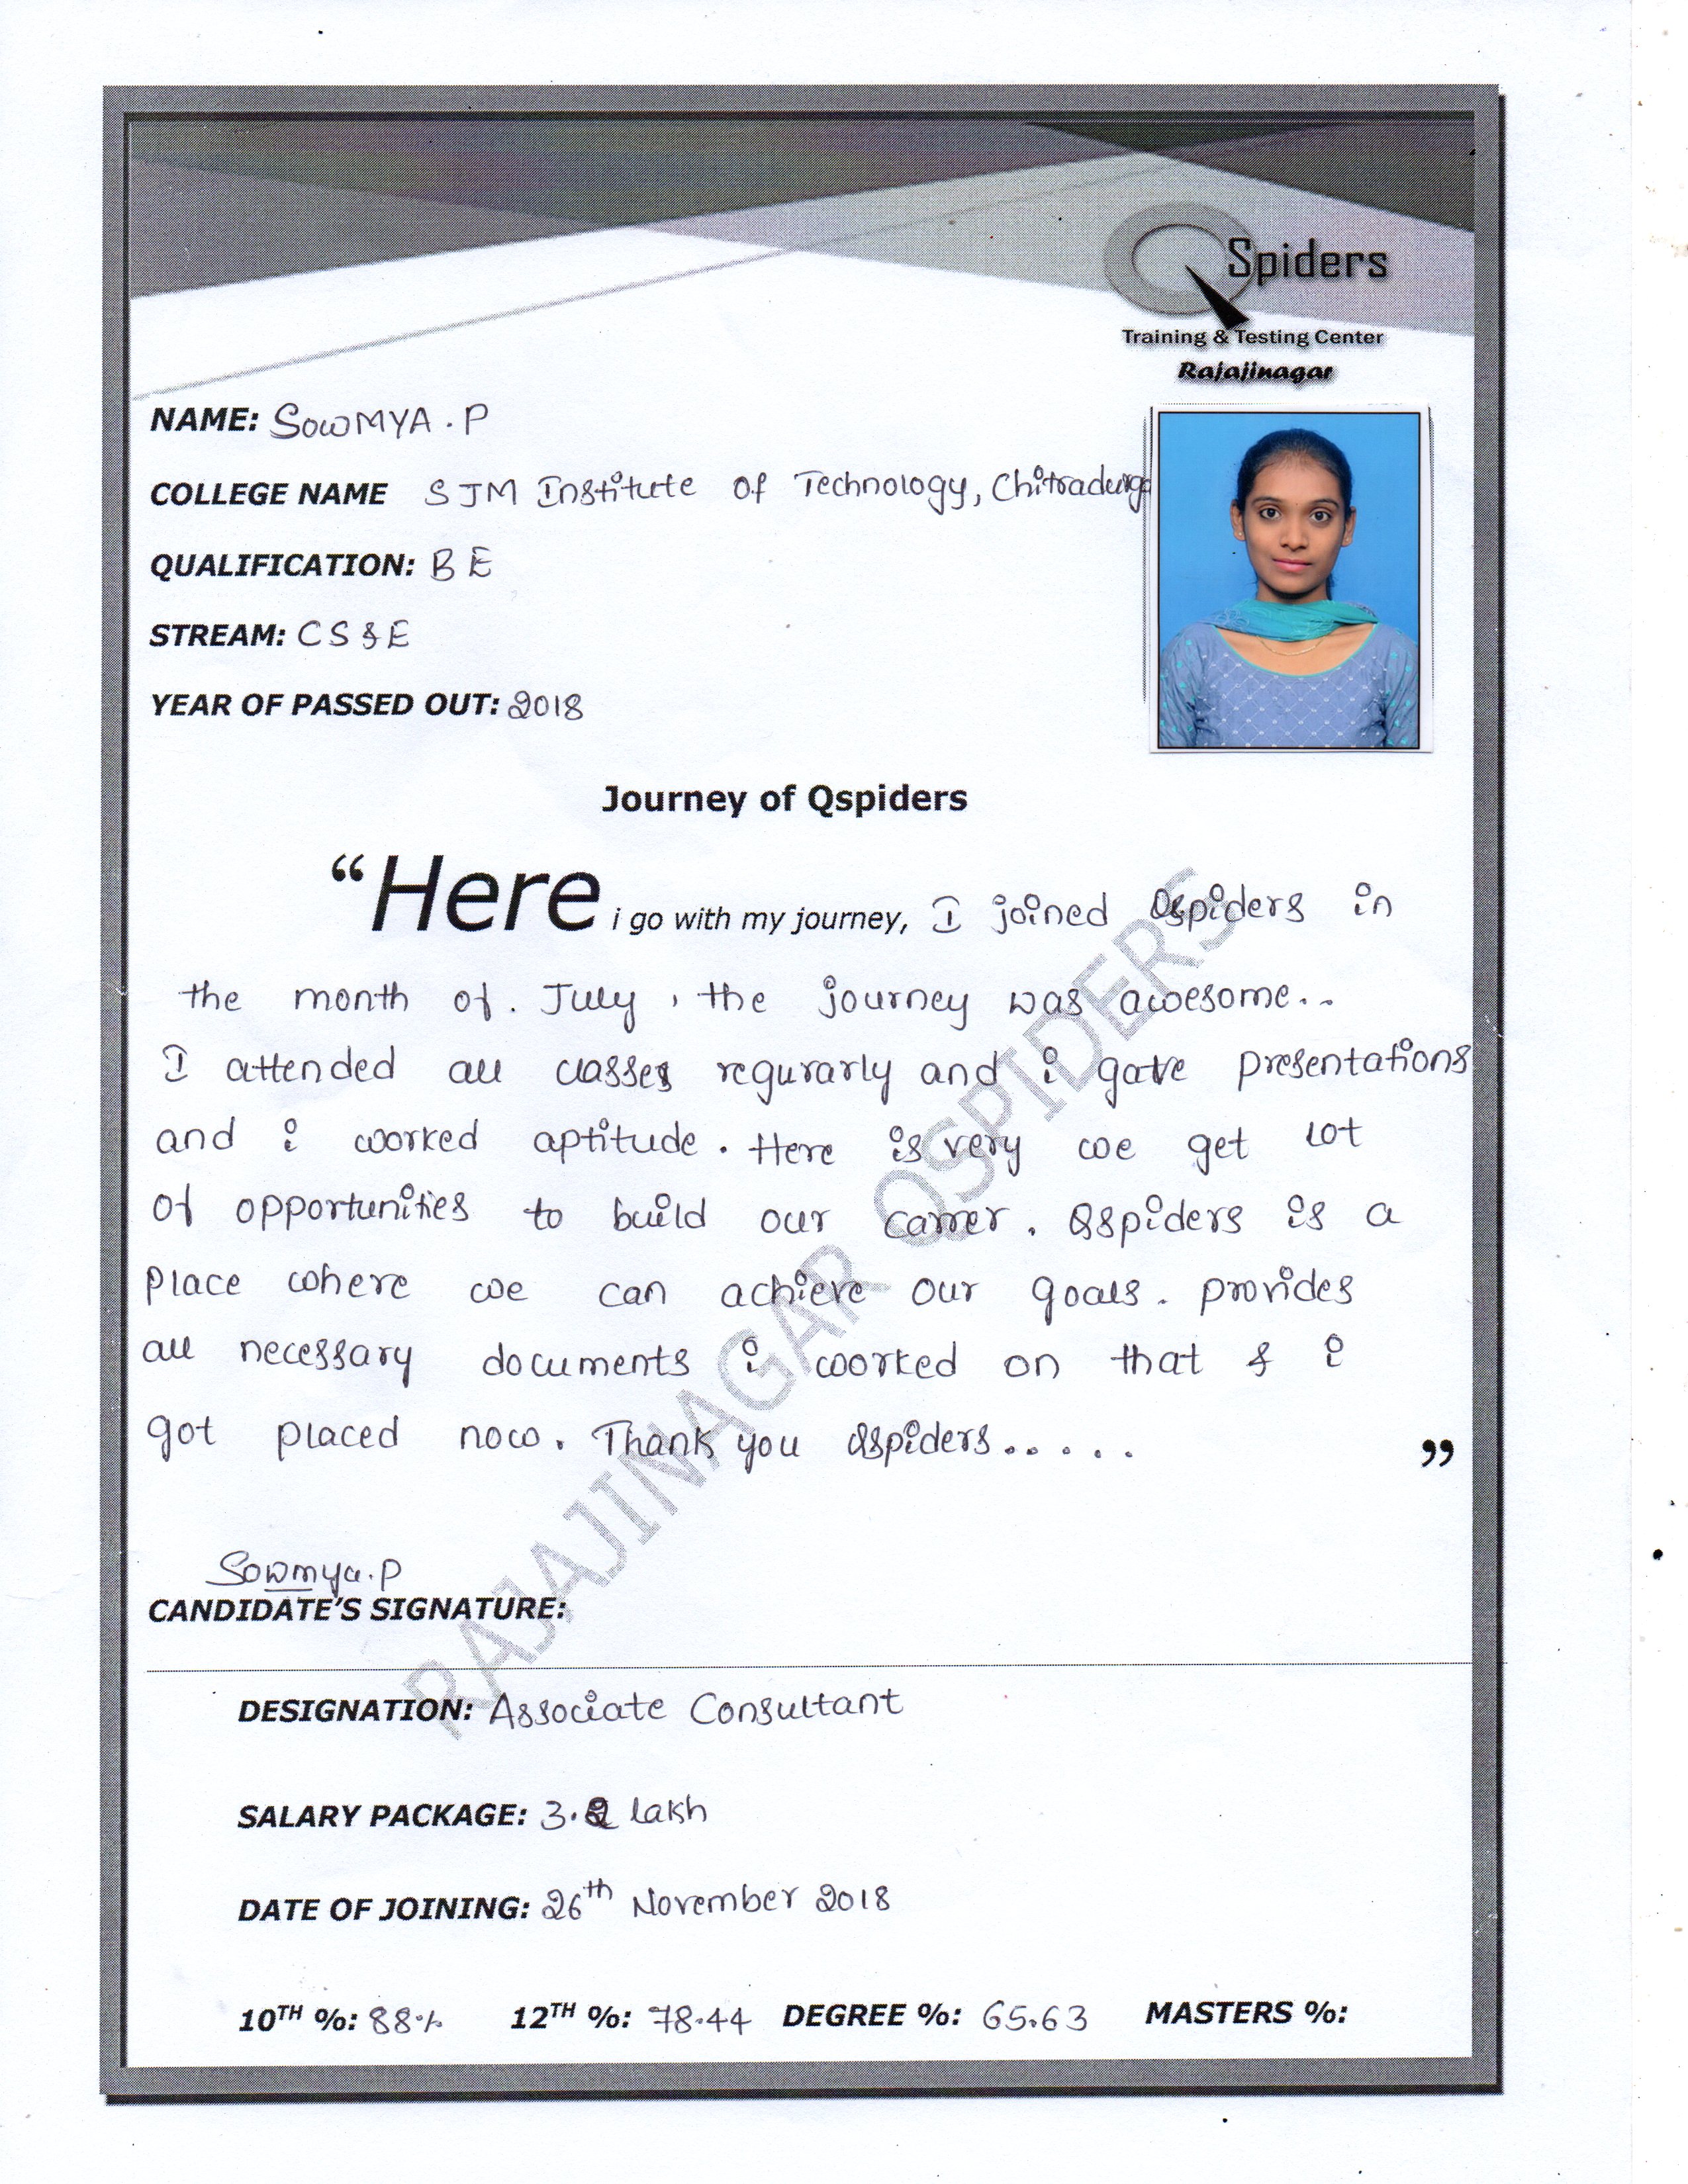 QSpiders
Training & Testing Center
Rajajinagar
NAME: SOWMYA . P
COLLEGE NAME SJM Institute of Technology, Chitradurga
QUALIFICATION: B E
STREAM: CS & E
YEAR OF PASSED OUT: 2018
Journey of Qspiders
“Here i go with my journey, I joined Qspiders in
the month of. July, the journey was awesome..
I attended all classes regurarly and i gave presentations
and i worked aptitude. Here is very we get lot
of opportunities to build our carrer. Qspiders is a
place where we can achieve our goals. provides
all necessary documents i worked on that & i
got placed now. Thank you Qspiders..... ”
RAJAJINAGAR QSPIDERS
Sowmya.P
CANDIDATE’S SIGNATURE:
DESIGNATION: Associate Consultant
SALARY PACKAGE: 3.2 lakh
DATE OF JOINING: 26th November 2018
10TH %: 88% 12TH %: 78.44 DEGREE %: 65.63 MASTERS %: